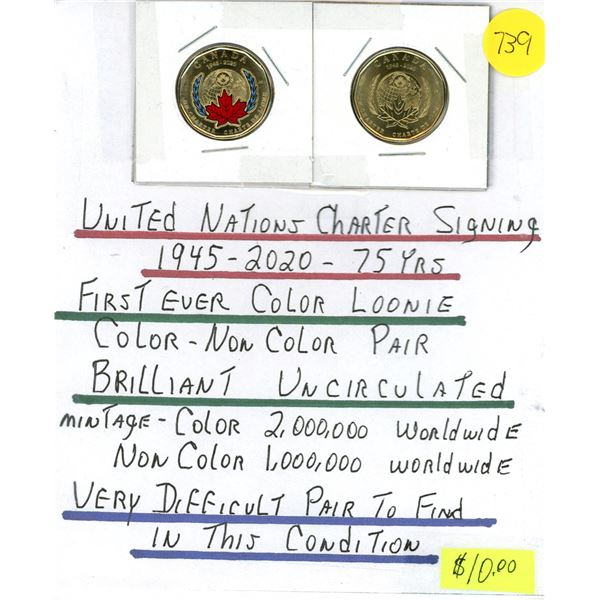 739
CANADA
1945-2020
CANADA
UNITED NATIONS CHARTER SIGNING
1945-2020-75 YRS
FIRST EVER COLOR LOONIE
COLOR-NON COLOR PAIR
BRILLIANT UNCIRCULATED
MINTAGE-COLOR 2,000,000 WORLDWIDE
NON COLOR 1,000,000 WORLDWIDE
VERY DIFFICULT PAIR TO FIND
IN THIS CONDITION
$10.00